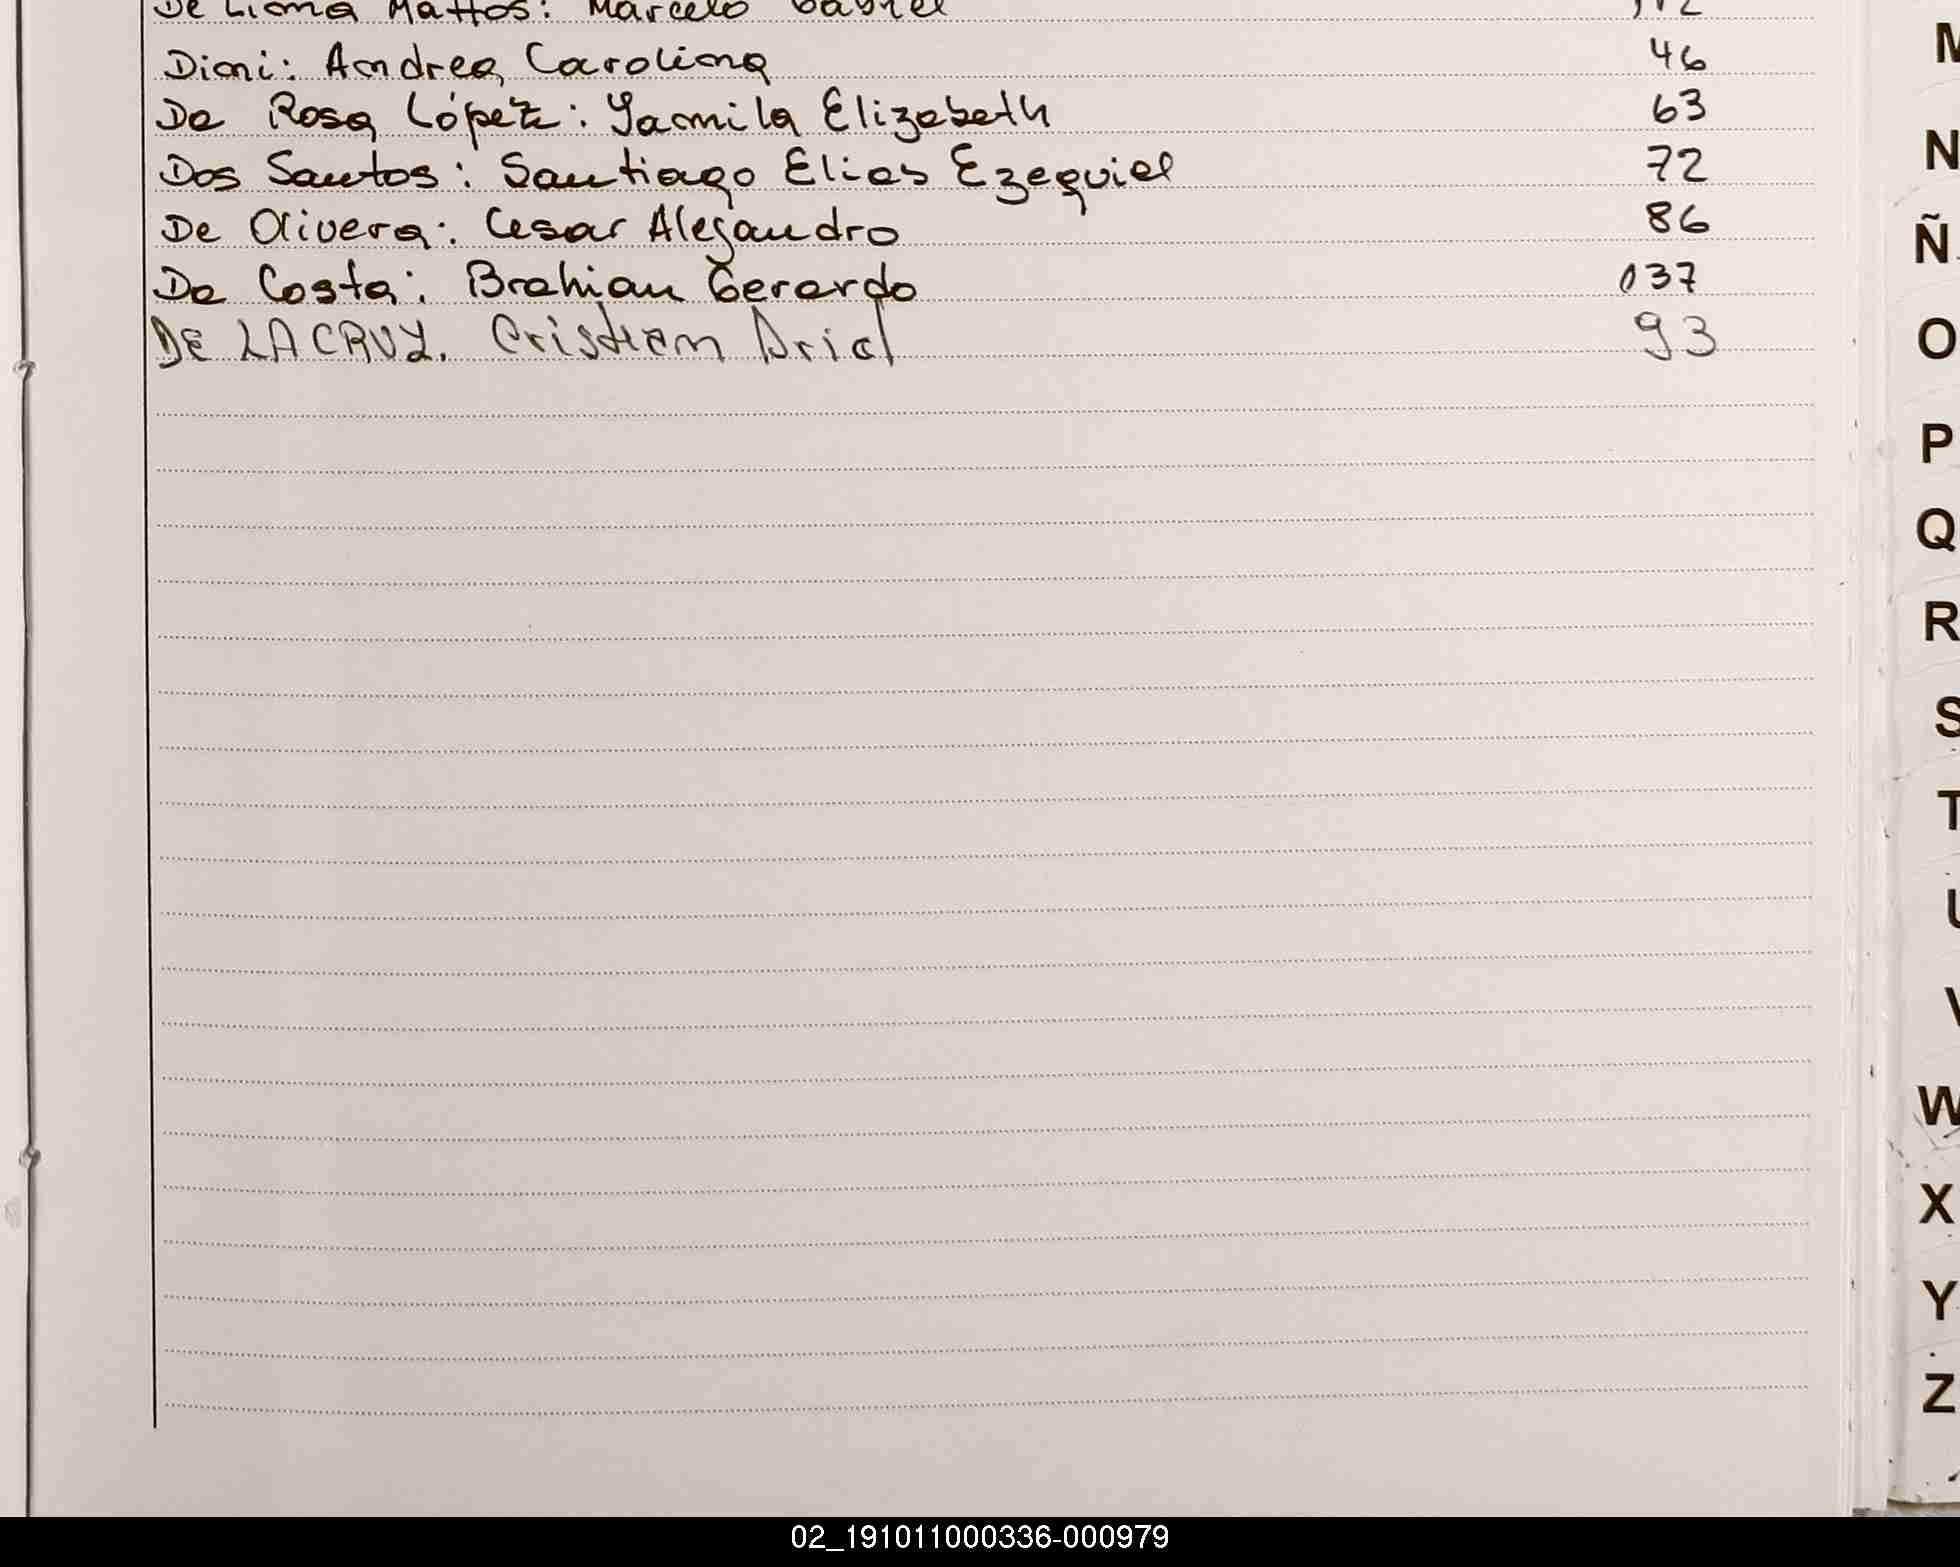 De Lima Mattos: Marcelo Gabriel
Dini: Andrea Carolina 46
Da Rosa López: Yamila Elizabeth 63
Dos Santos: Santiago Elias Ezequiel 72
De Olivera: Cesar Alejandro 86
Da Costa: Brahian Gerardo 037
DE LA CRUZ. Cristian Ariel 93
N
Ñ
O
P
Q
R
S
T
U
V
W
X
Y
Z
02_191011000336-000979